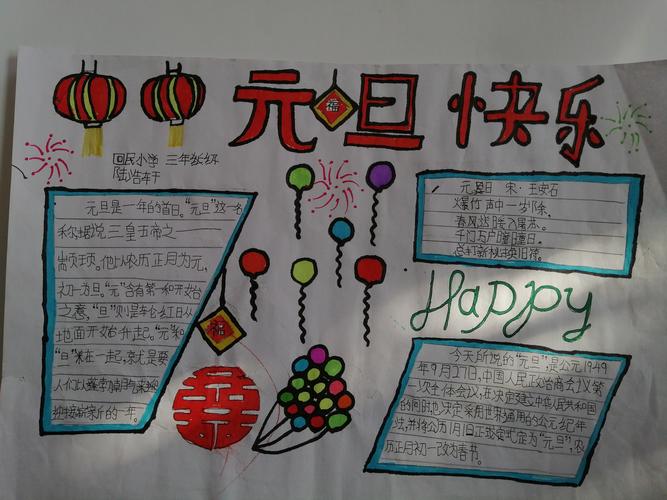 元旦快乐
福
回民小学 三年级
元旦是一年的首日。“元旦”这一名
称据说三皇五帝之一——
颛顼。他以农历正月为元,
初一为旦。“元”含有第一和开始
之意,“旦”则是一轮红日从
地面开始升起。“元”和
“旦”在一起,就是要
人们以蓬勃朝气来迎
迎接崭新的一年。
福
元旦 宋·王安石
爆竹声中一岁除,
春风送暖入屠苏。
千门万户曈曈日,
总把新桃换旧符。
Happy
今天所说的“元旦”,是公元1949
年9月27日,中国人民政治商会议第
一次全体会议,在决定建立中华人民共和国
的同时,也决定采用世界通用的公元纪年
法,并将公历1月1日正式定为“元旦”,农
历正月初一改为春节。